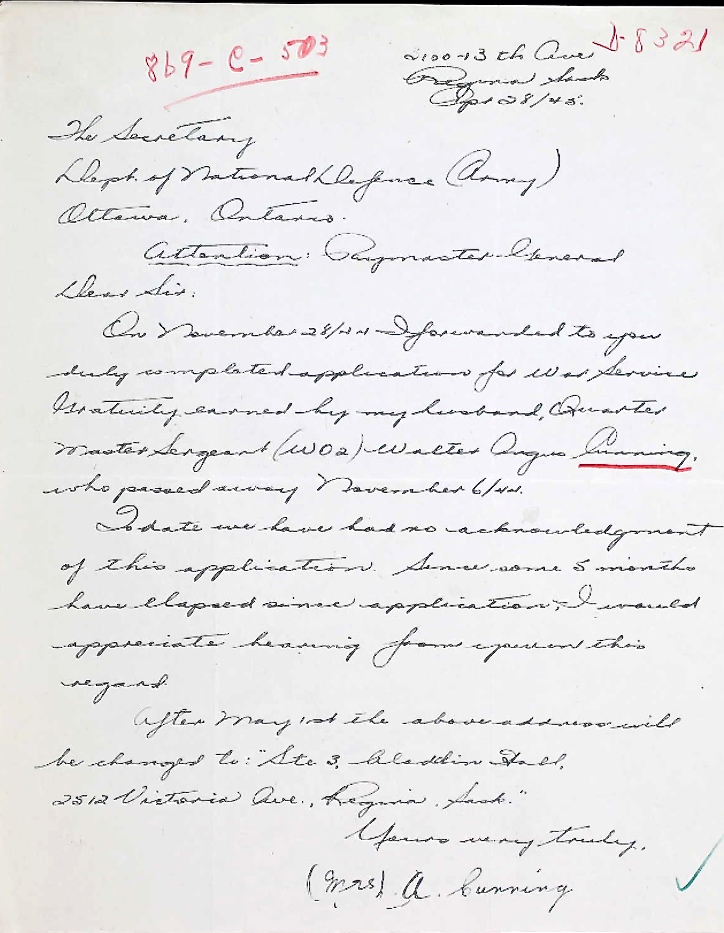 869-C-503
D-8321
2100-13th Ave
Regina Sask
Apr 28/45.
The Secretary
Dept. of National Defence (Army)
Ottawa, Ontario.
Attention: Paymaster-General
Dear Sir:
On November 28/44 I forwarded to you
duly completed application for War Service
Gratuity earned by my husband, Quarter
Master Sergeant (WO2) Walter Angus Cunning,
who passed away November 6/44.
To date we have had no acknowledgment
of this application. Since some 5 months
have elapsed since application, I would
appreciate hearing from you in this
regard.
After May 1st the above address will
be changed to: "Ste 3, Aladdin Hall,
2512 Victoria Ave., Regina, Sask."
Yours very truly,
(Mrs). A. Cunning